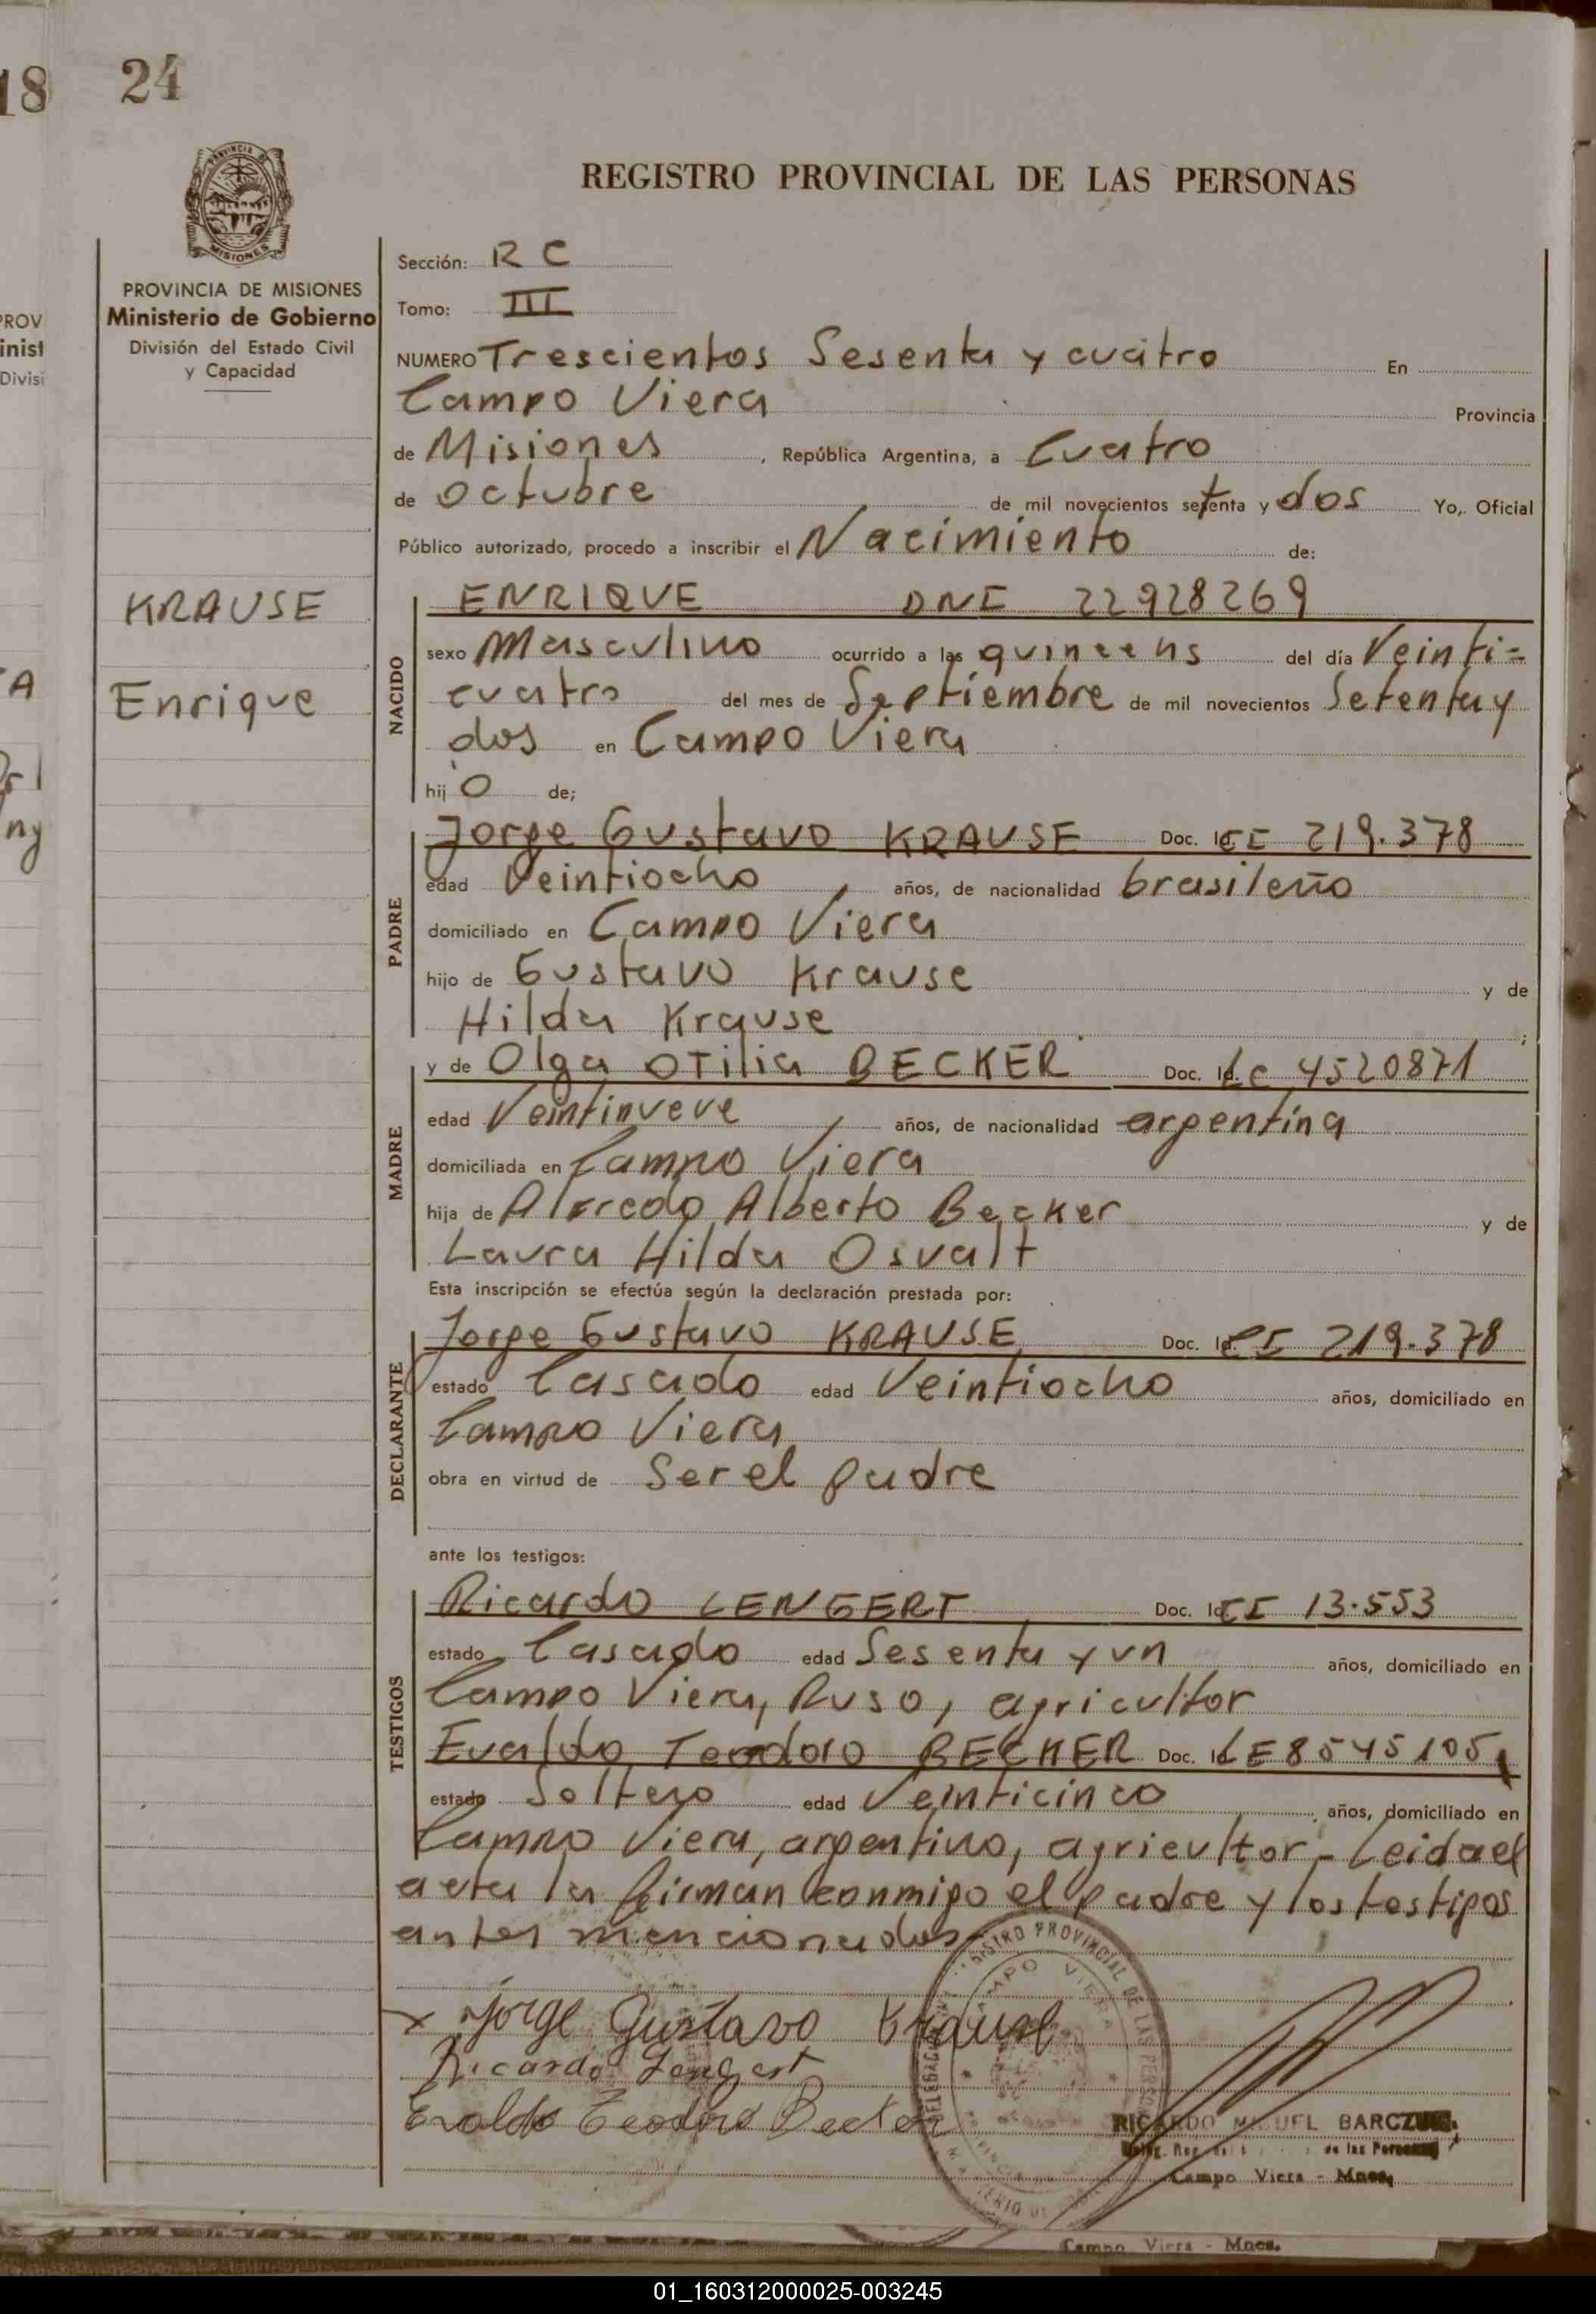 18
24
PROVINCIA DE
MISIONES
REGISTRO PROVINCIAL DE LAS PERSONAS
PROVINCIA DE MISIONES
Ministerio de Gobierno
División del Estado Civil
y Capacidad
PROV
inist
Divisi
Sección: R C
Tomo: III
NUMERO Trescientos Sesenta y cuatro En
Campo Viera Provincia
de Misiones, República Argentina, a Cuatro
de octubre de mil novecientos setenta y dos Yo, Oficial
Público autorizado, procedo a inscribir el Nacimiento de:
KRAUSE
Enrique
A
ny
NACIDO
ENRIQUE DNI 22928269
sexo Masculino ocurrido a las del día Veinti=
cuatro del mes de Septiembre de mil novecientos Setenta y
dos en Campo Viera
hij o de;
PADRE
Jorge Gustavo KRAUSE Doc. Id. CI 219.378
edad Veintiocho, años, de nacionalidad brasileño
domiciliado en Campo Viera
hijo de Gustavo Krause y de
Hilda Krause ;
MADRE
y de Olga OTilia BECKER Doc. Id. LC 4520871
edad Veintinueve, años, de nacionalidad argentina
domiciliada en Campo Viera
hija de Alfredo Alberto Becker y de
Laura Hilda Osvalt
Esta inscripción se efectúa según la declaración prestada por:
DECLARANTE
Jorge Gustavo KRAUSE Doc. Id. CI 219.378
estado Casado edad Veintiocho años, domiciliado en
Campo Viera
obra en virtud de Ser el padre
ante los testigos:
TESTIGOS
Ricardo LENGERT Doc. Id. CI 13.553
estado Casado edad Sesenta y un años, domiciliado en
Campo Viera, Ruso, agricultor
Evaldo Teodoro BECKER Doc. Id. LE 8545105
estado Soltero edad Veinticinco años, domiciliado en
Campo Viera, argentino, agricultor - Leida el
acta la firman conmigo el padre y los testigos
antes mencionados
x Jorge Gustavo Krause
Ricardo Lengert
Evaldo Teodoro Becker
REGISTRO PROVINCIAL DE LAS PERSONAS
CAMPO VIERA
RICARDO MIGUEL
de las Personas
Campo Viera - Mnes.
Campo Viera - Mnes.
01_160312000025-003245